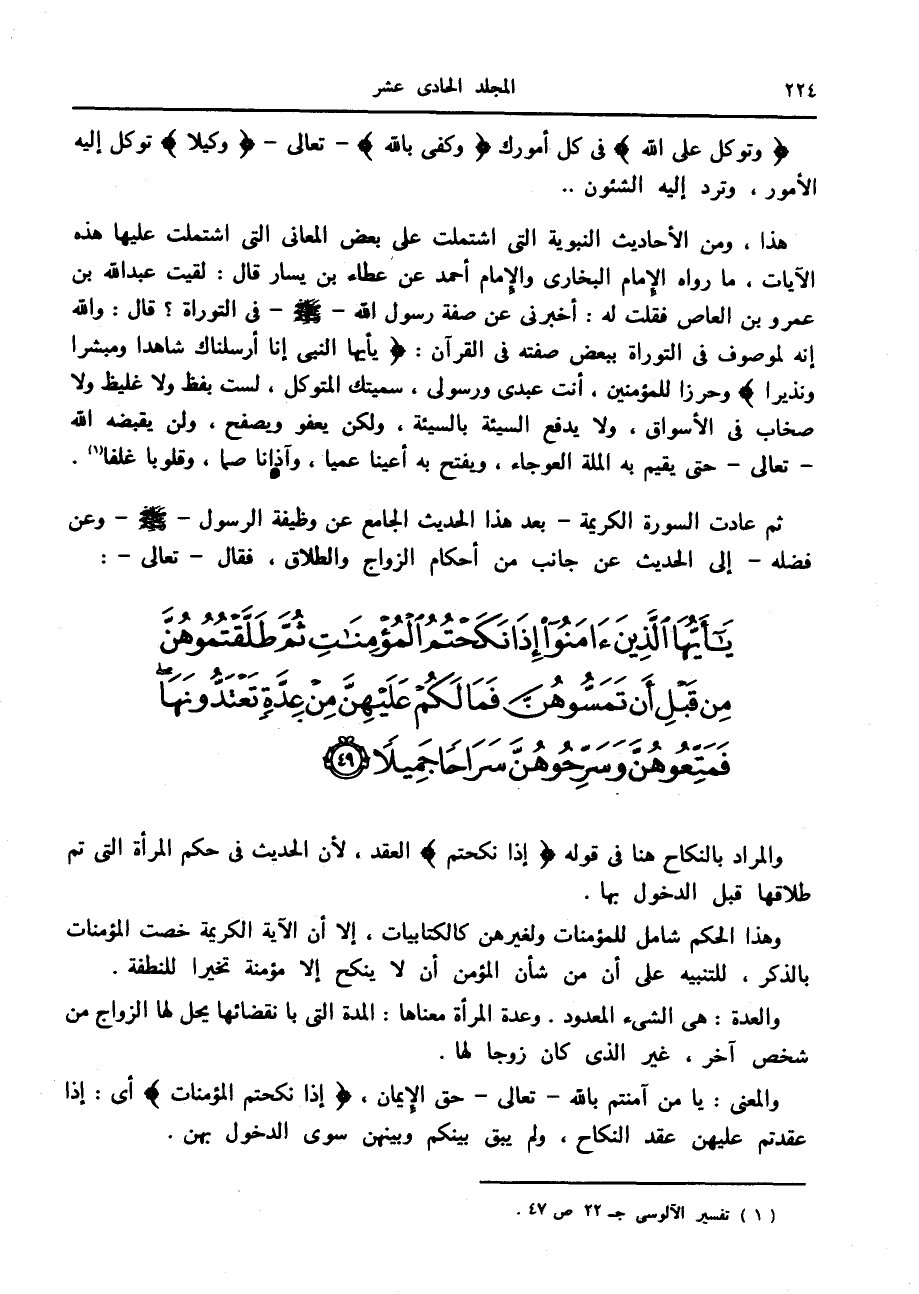 ٢٢٤ المجلد الحادى عشر
﴿ وتوكل على الله ﴾ فى كل أمورك ﴿ وكفى بالله ﴾ – تعالى – ﴿ وكيلا ﴾ توكل إليه
الأمور ، وترد إليه الشئون ..
هذا ، ومن الأحاديث النبوية التى اشتملت على بعض المعانى التى اشتملت عليها هذه
الآيات ، ما رواه الإمام البخارى والإمام أحمد عن عطاء بن يسار قال : لقيت عبدالله بن
عمرو بن العاص فقلت له : أخبرنى عن صفة رسول الله – ﷺ – فى التوراة ؟ قال : والله
إنه لموصوف فى التوراة ببعض صفته فى القرآن : ﴿ يأيها النبى إنا أرسلناك شاهدا ومبشرا
ونذيرا ﴾ وحرزا للمؤمنين ، أنت عبدى ورسولى ، سميتك المتوكل ، لست بفظ ولا غليظ ولا
صخاب فى الأسواق ، ولا يدفع السيئة بالسيئة ، ولكن يعفو ويصفح ، ولن يقبضه الله
– تعالى – حتى يقيم به الملة العوجاء ، ويفتح به أعينا عميا ، وآذانا صما ، وقلوبا غلفا(١) .
ثم عادت السورة الكريمة – بعد هذا الحديث الجامع عن وظيفة الرسول – ﷺ – وعن
فضله – إلى الحديث عن جانب من أحكام الزواج والطلاق ، فقال – تعالى – :
يَٰٓأَيُّهَا ٱلَّذِينَ ءَامَنُوٓا۟ إِذَا نَكَحْتُمُ ٱلْمُؤْمِنَٰتِ ثُمَّ طَلَّقْتُمُوهُنَّ
مِن قَبْلِ أَن تَمَسُّوهُنَّ فَمَا لَكُمْ عَلَيْهِنَّ مِنْ عِدَّةٍ تَعْتَدُّونَهَا ۖ
فَمَتِّعُوهُنَّ وَسَرِّحُوهُنَّ سَرَاحًا جَمِيلًا ٤٩
والمراد بالنكاح هنا فى قوله ﴿ إذا نكحتم ﴾ العقد ، لأن الحديث فى حكم المرأة التى تم
طلاقها قبل الدخول بها .
وهذا الحكم شامل للمؤمنات ولغيرهن كالكتابيات ، إلا أن الآية الكريمة خصت المؤمنات
بالذكر ، للتنبيه على أن من شأن المؤمن أن لا ينكح إلا مؤمنة تخيرا للنطفة .
والعدة : هى الشىء المعدود . وعدة المرأة معناها : المدة التى با نقضائها يحل لها الزواج من
شخص آخر ، غير الذى كان زوجا لها .
والمعنى : يا من آمنتم بالله – تعالى – حق الإيمان ، ﴿ إذا نكحتم المؤمنات ﴾ أى : إذا
عقدتم عليهن عقد النكاح ، ولم يبق بينكم وبينهن سوى الدخول بهن .
( ١ ) تفسير الآلوسى جـ ٢٢ ص ٤٧ .